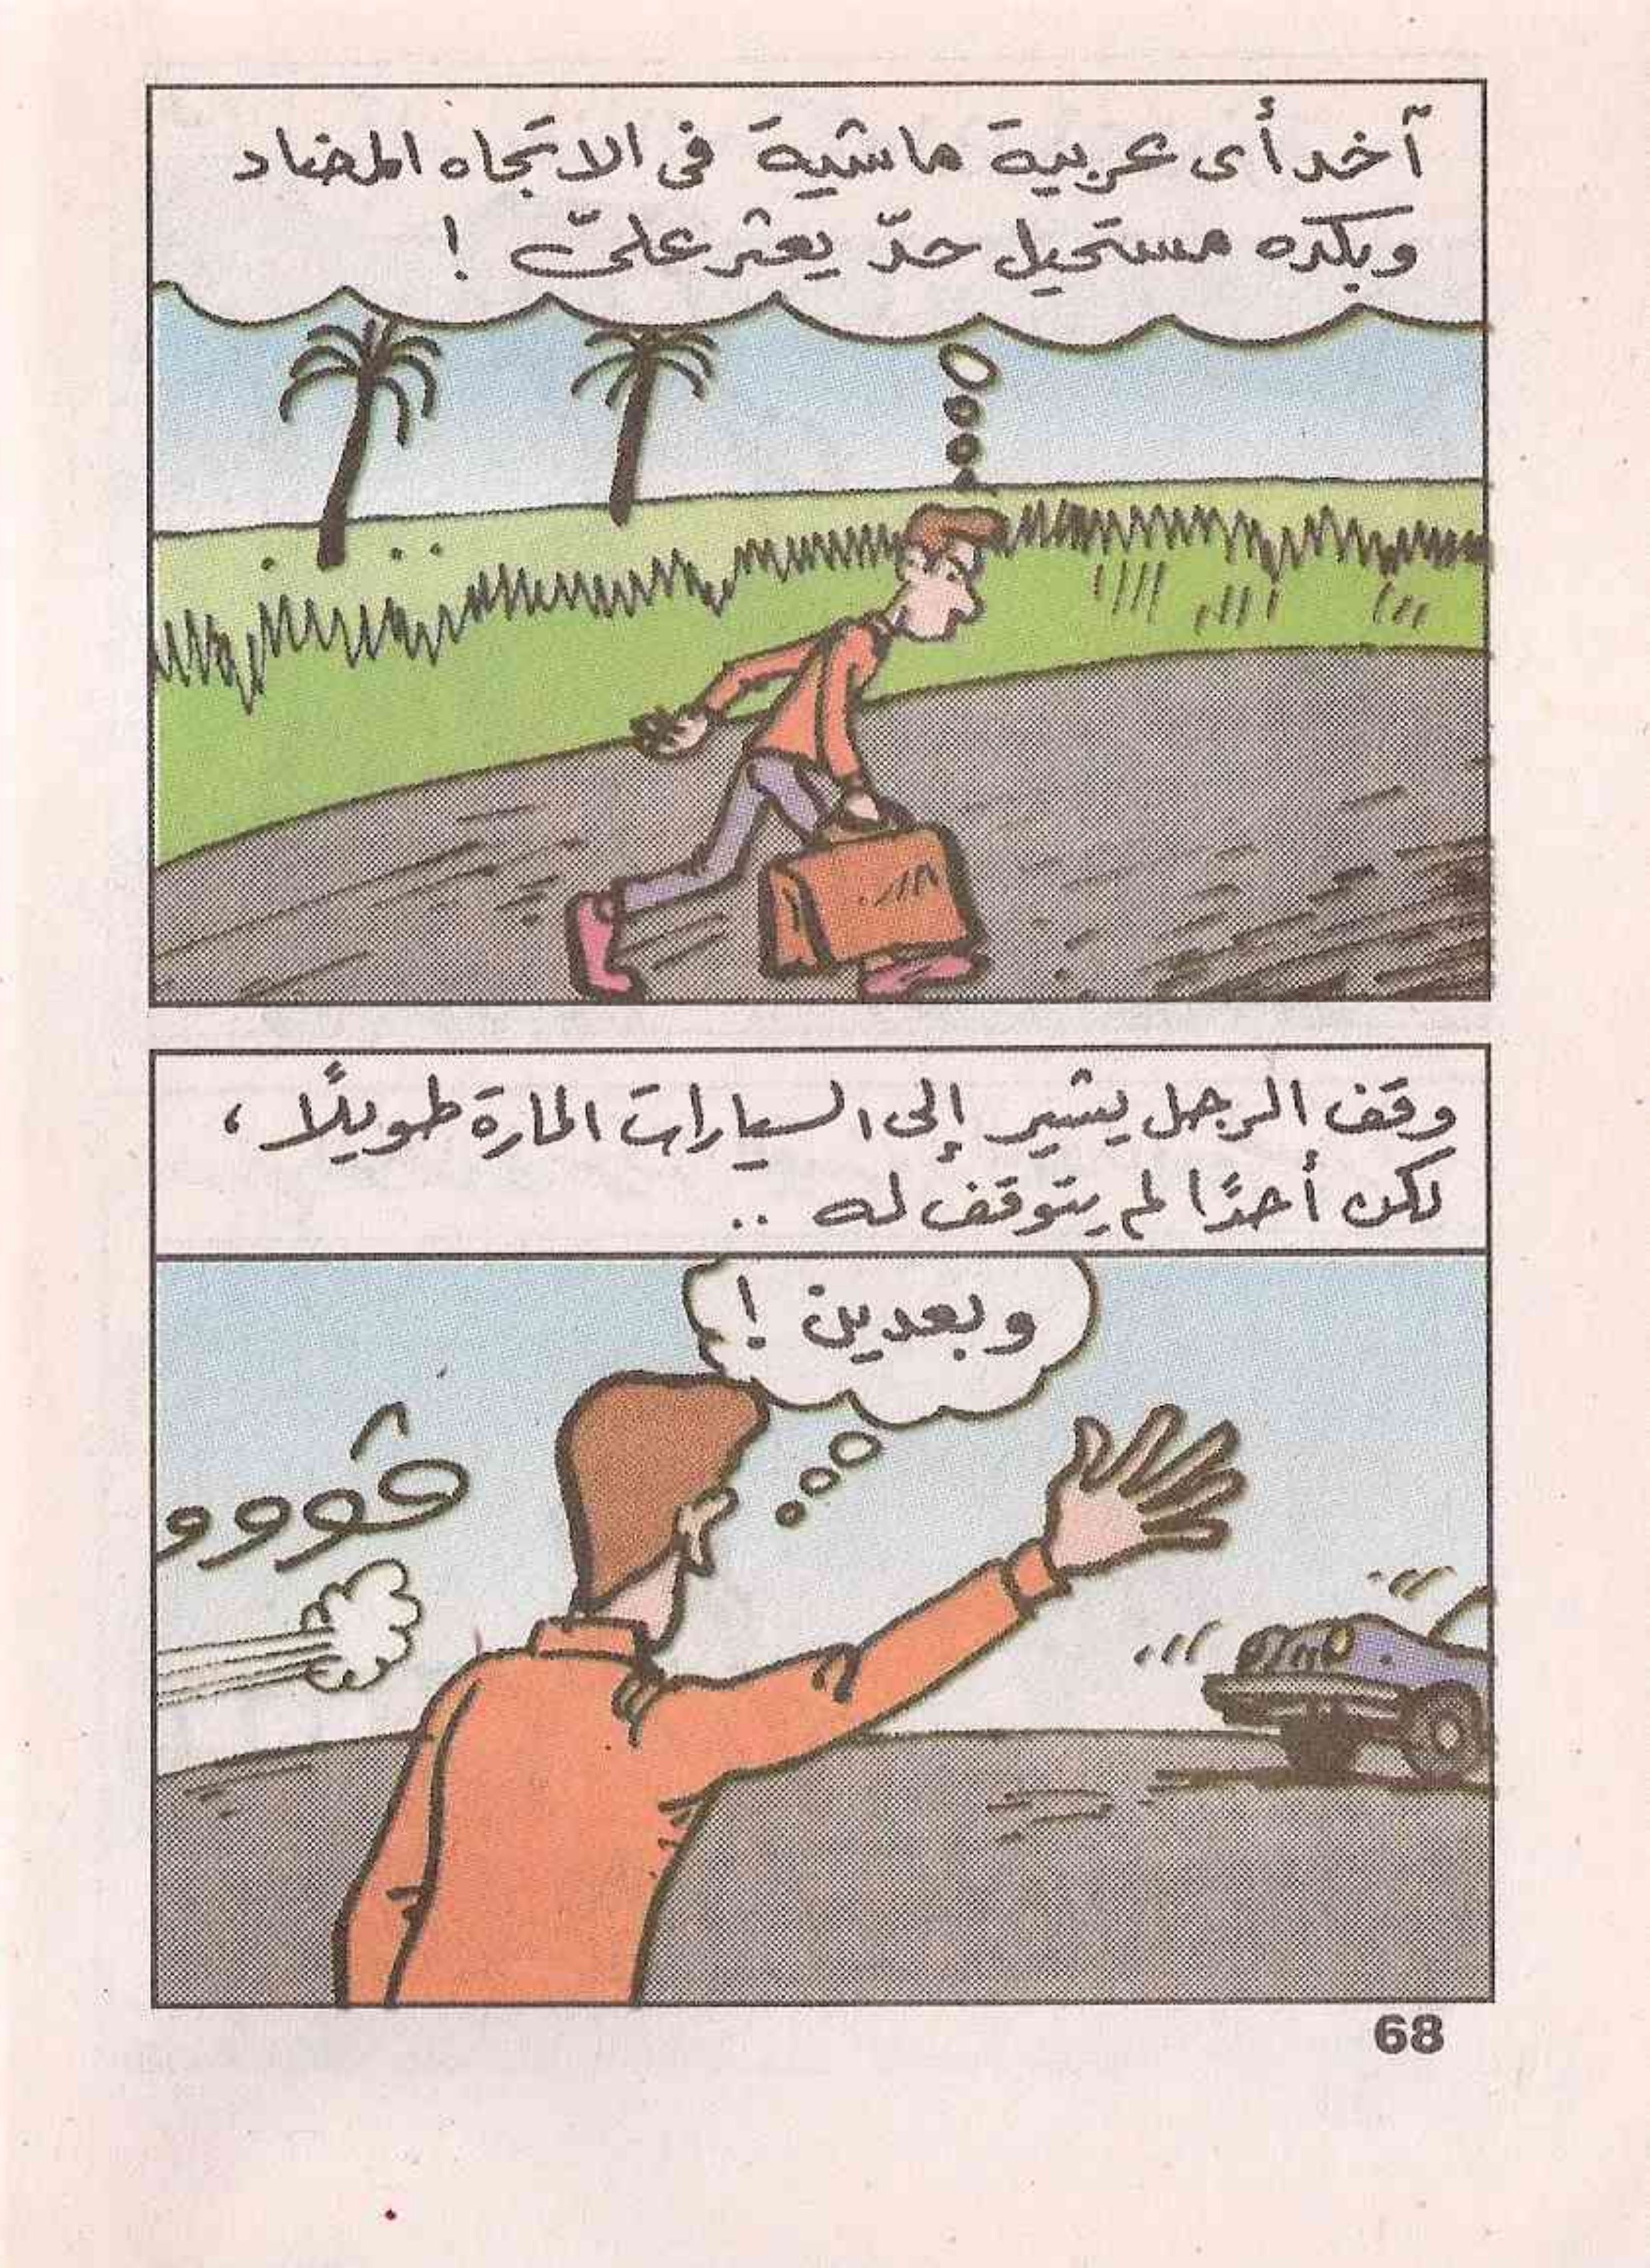 آخد أى عربية ماشية فى الاتجاه المضاد
وبكده مستحيل حدّ يعثر علىّ !
وقف الرجل يشير إلى السيارات المارة طويلًا ،
لكن أحدًا لم يتوقف له ..
وبعدين !
ڤوووو
68